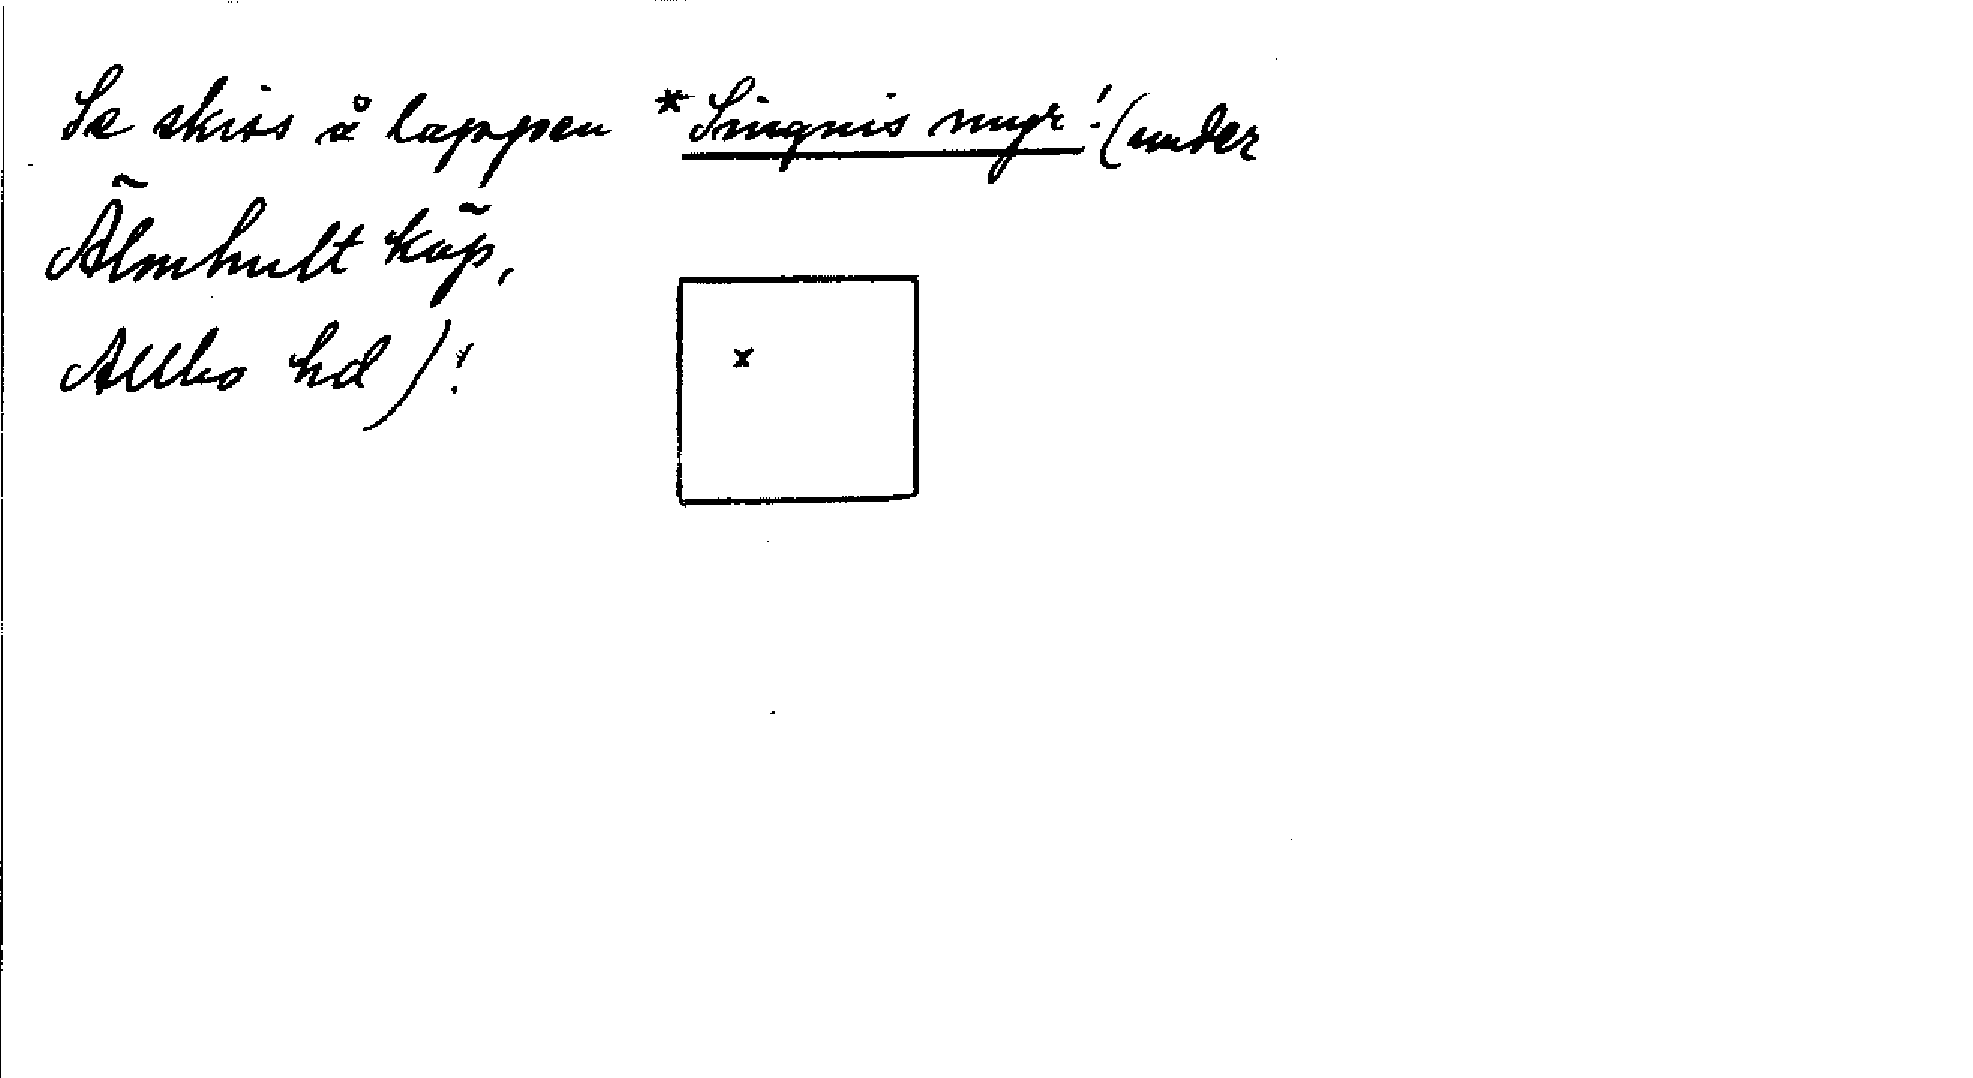 Se skiss å lappen *Singnis myr! (under
Älmhult köp,
Allbo hd)!
x